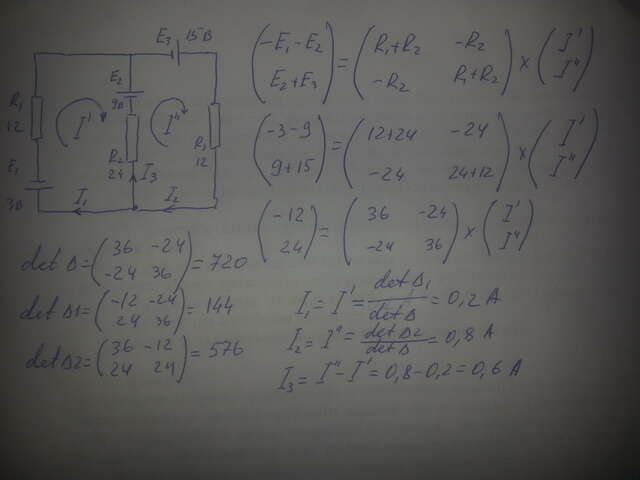 E₃ 15В
E₂
9В
R₁
12
I'
I"
R₁
12
R₂
24
I₃
E₁
3В
I₁
I₂
(-E₁-E₂
E₂+E₃) = (R₁+R₂ -R₂
-R₂ R₁+R₂) × (I'
I")
(-3-9
9+15) = (12+24 -24
-24 24+12) × (I'
I")
(-12
24) = (36 -24
-24 36) × (I'
I")
det Δ = (36 -24
-24 36) = 720
det Δ1 = (-12 -24
24 36) = 144
det Δ2 = (36 -12
24 24) = 576
I₁ = I' = detΔ₁/detΔ = 0,2 A
I₂ = I" = detΔ2/detΔ = 0,8 A
I₃ = I" - I' = 0,8-0,2 = 0,6 A